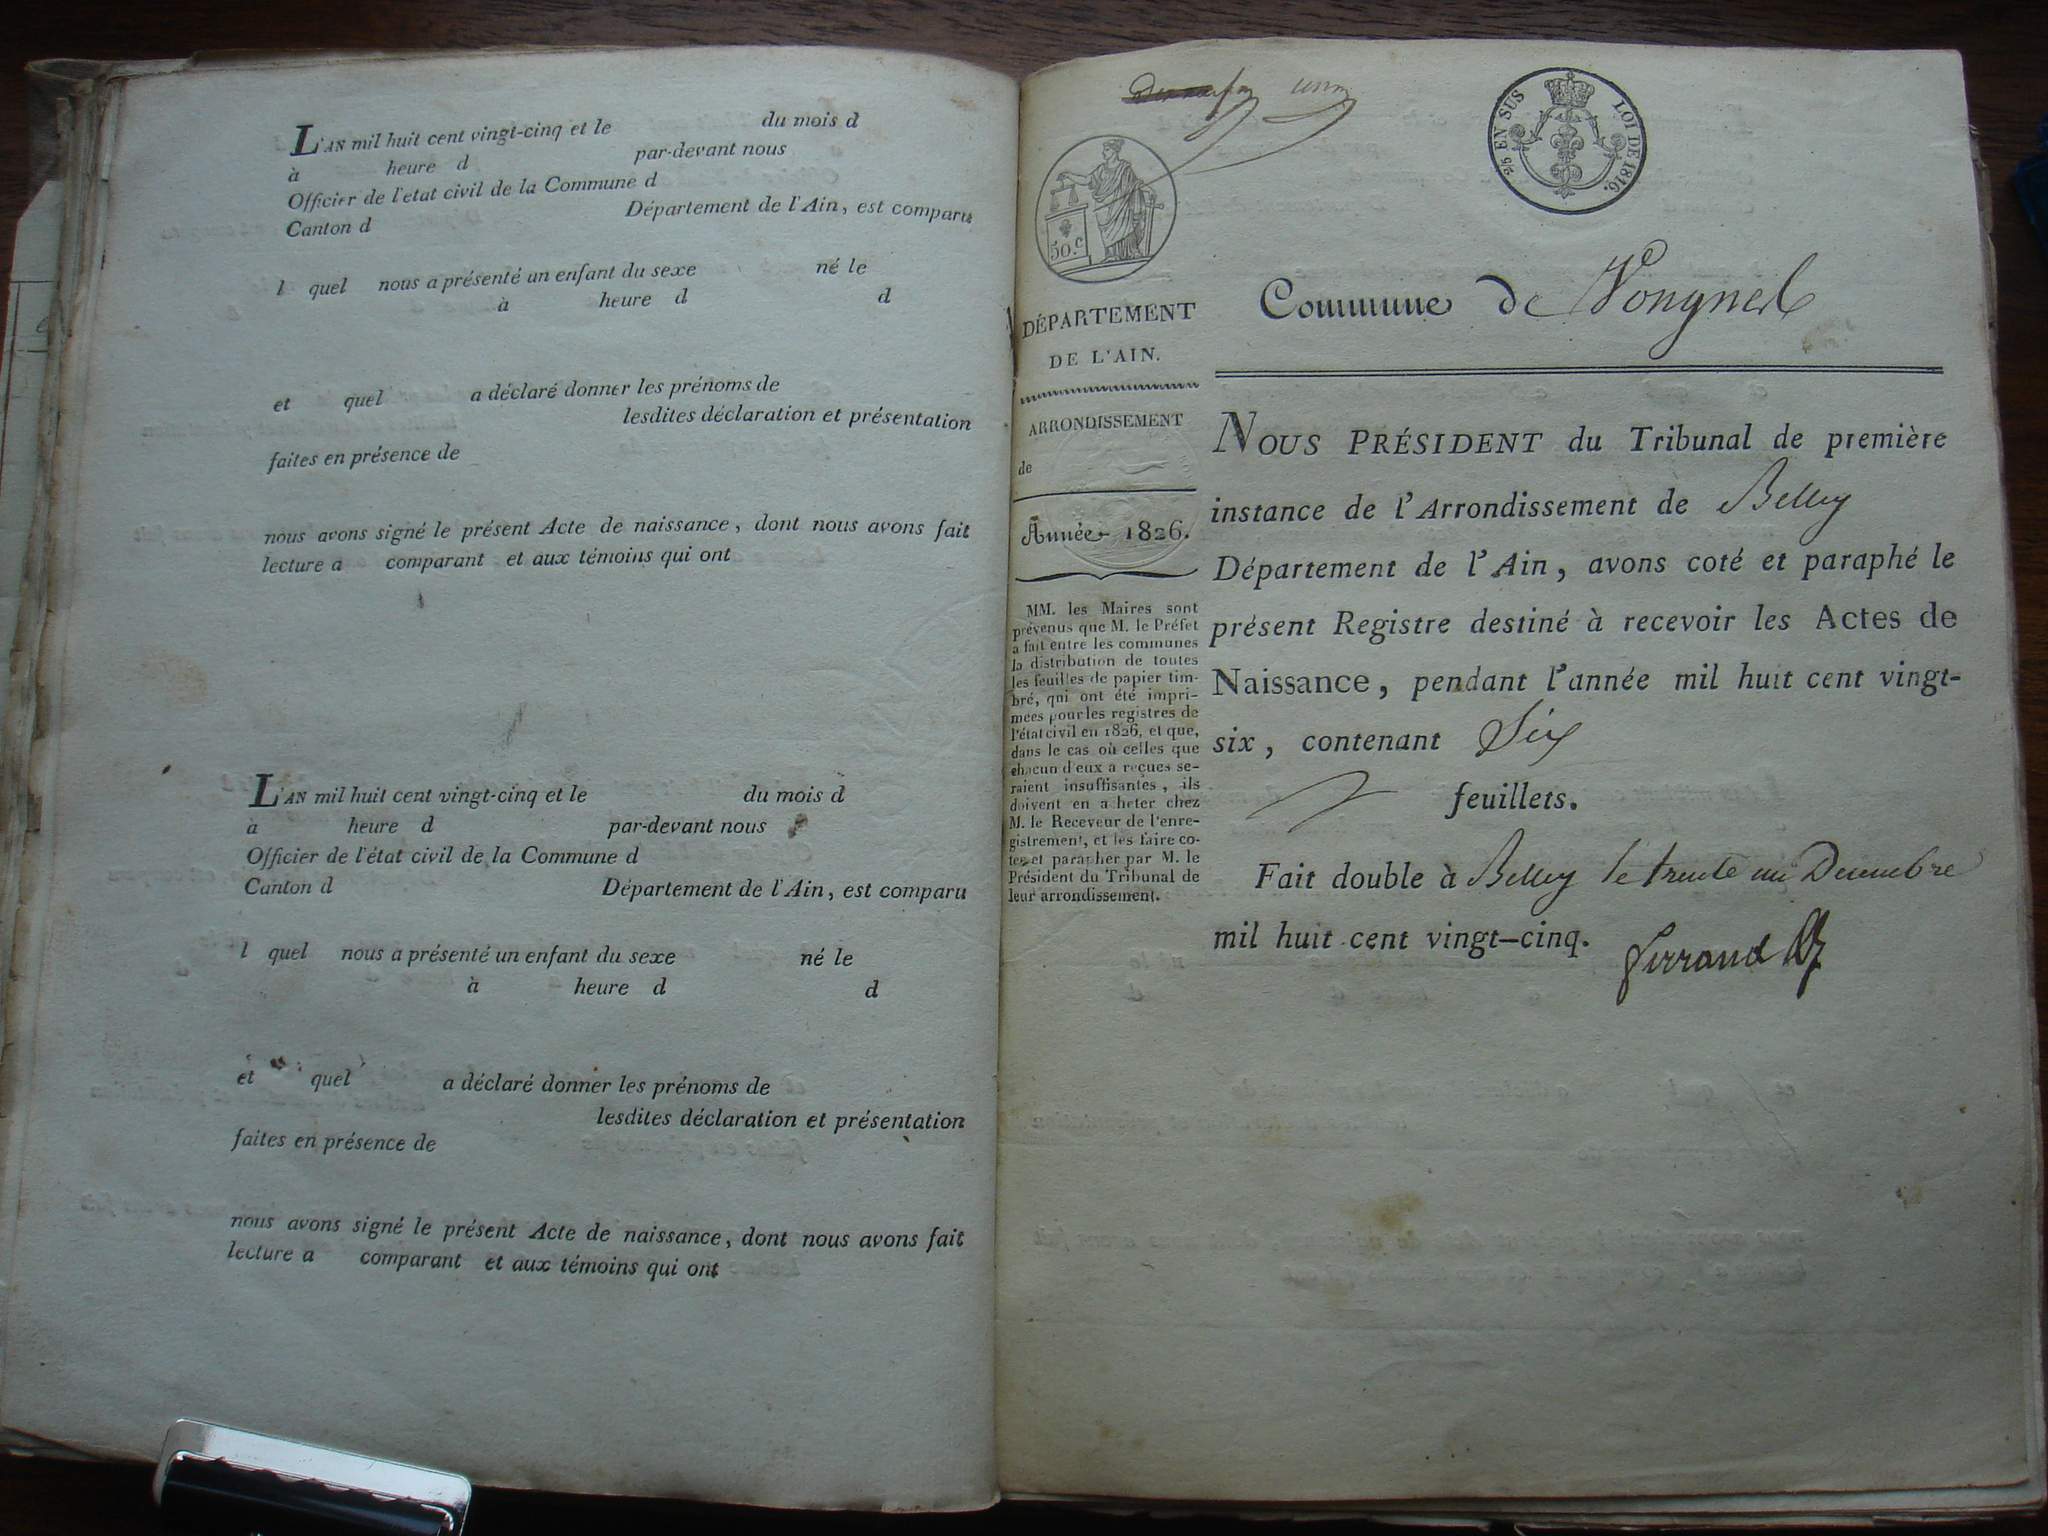 L'AN mil huit cent vingt-cinq et le du mois d
à heure d par-devant nous
Officier de l'état civil de la Commune d
Canton d Département de l'Ain, est comparu
l quel nous a présenté un enfant du sexe né le
à heure d d
et quel a déclaré donner les prénoms de
lesdites déclaration et présentation
faites en présence de
nous avons signé le présent Acte de naissance, dont nous avons fait
lecture a comparant et aux témoins qui ont
L'AN mil huit cent vingt-cinq et le du mois d
à heure d par-devant nous
Officier de l'état civil de la Commune d
Canton d Département de l'Ain, est comparu
l quel nous a présenté un enfant du sexe né le
à heure d d
et quel a déclaré donner les prénoms de
lesdites déclaration et présentation
faites en présence de
nous avons signé le présent Acte de naissance, dont nous avons fait
lecture a comparant et aux témoins qui ont
2/5 EN SUS LOI DE 1816.
50.c
DÉPARTEMENT
DE L'AIN.
ARRONDISSEMENT
de
Année 1826.
MM. les Maires sont
prévenus que M. le Préfet
a fait entre les communes
la distribution de toutes
les feuilles de papier tim-
bré, qui ont été impri-
mées pour les registres de
l'état civil en 1826, et que,
dans le cas où celles que
chacun d'eux a reçues se-
raient insuffisantes, ils
doivent en acheter chez
M. le Receveur de l'enre-
gistrement, et les faire co-
ter et parapher par M. le
Président du Tribunal de
leur arrondissement.
Commune de Vongnes
NOUS PRÉSIDENT du Tribunal de première
instance de l'Arrondissement de Belley
Département de l'Ain, avons coté et paraphé le
présent Registre destiné à recevoir les Actes de
Naissance, pendant l'année mil huit cent vingt-
six, contenant Six
feuillets.
Fait double à Belley le trente un Decembre
mil huit cent vingt-cinq.
Ferrand